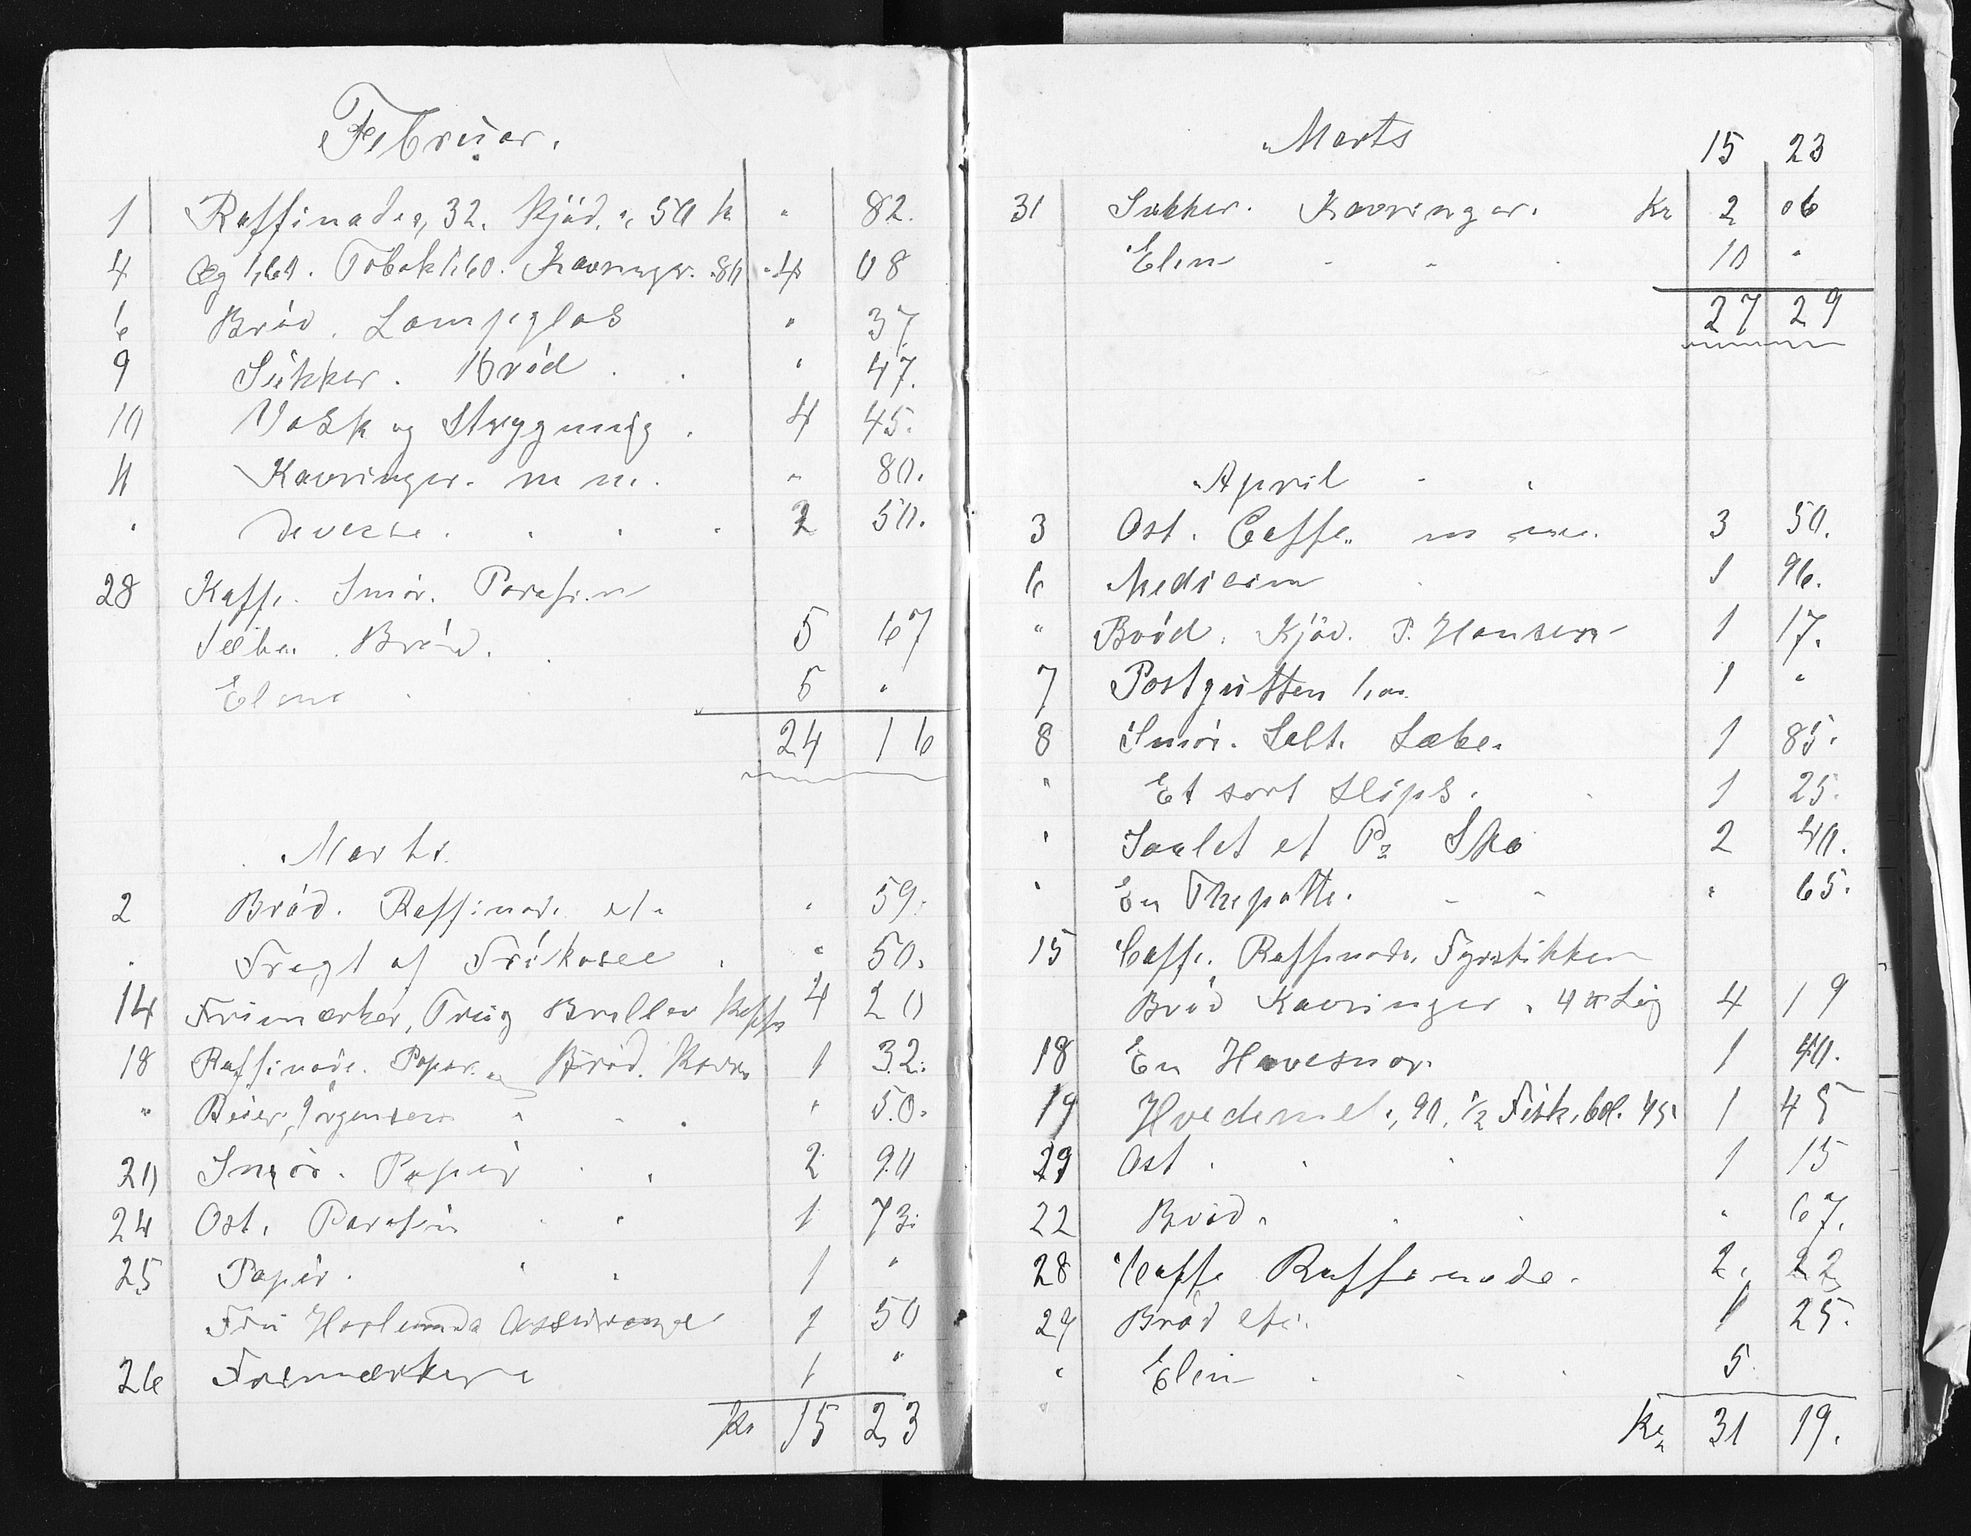 Februar.
1 Raffinade, 32. Kjöd. " 50 Kr " 82.
4 Æg 1,60. Tobak 1,60. Kavringer. 80 4 08
6 Bröd. Lampeglas " 37.
9 Sukker. Bröd " 47.
10 Vask og Strygning. 4 45.
11 Kavringer. m m. " 80.
" Diverse. 2 50.
28 Kaffe. Smör. Parafin
Sæbe. Bröd. 5 67
Elene 5 "
24 16
Marts.
2 Bröd. Raffinade et. " 59.
" Fragt af Frikasee " 50.
14 Frimærker, Briller Kaffe 4 20
18 Raffinade. Papir. Bröd. Kavr. 1 32.
" Beier Jörgensen " " 50.
20 Smör. Papir 2 90
24 Ost. Parafin 1 73.
25 Papir. 1 "
Fru Assurange 1 50
26 Frimærker 1 "
Kr 15 23
Marts 15 23
31 Sukker. Kavringer. Kr 2 06
Elen 10 "
27 29
April
3 Ost. Caffe. m m. 3 50.
6 Medicin 1 96.
" Bröd. Kjöd. P. Hansen 1 17.
7 Postgutten 1,00 1 "
8 Smör. Salt. Sæbe. 1 85.
" Et sort Slips. 1 25.
" Saalet et Pr Sko 2 40.
" En Thepotte. " 65.
15 Caffe. Raffinade. Fyrstikker
Bröd Kavringer. 4 Løg 4 19
18 En Havesnor. 1 40.
19 Hvedemel, 90. 1/2 Fiskebol. 45. 1 45
29 Ost. 1 15
22 Bröd. " 67.
28 Caffe Raffinade. 2. 22
29 Bröd etc. 1 25.
" Elin 5.
Kr 31 19.